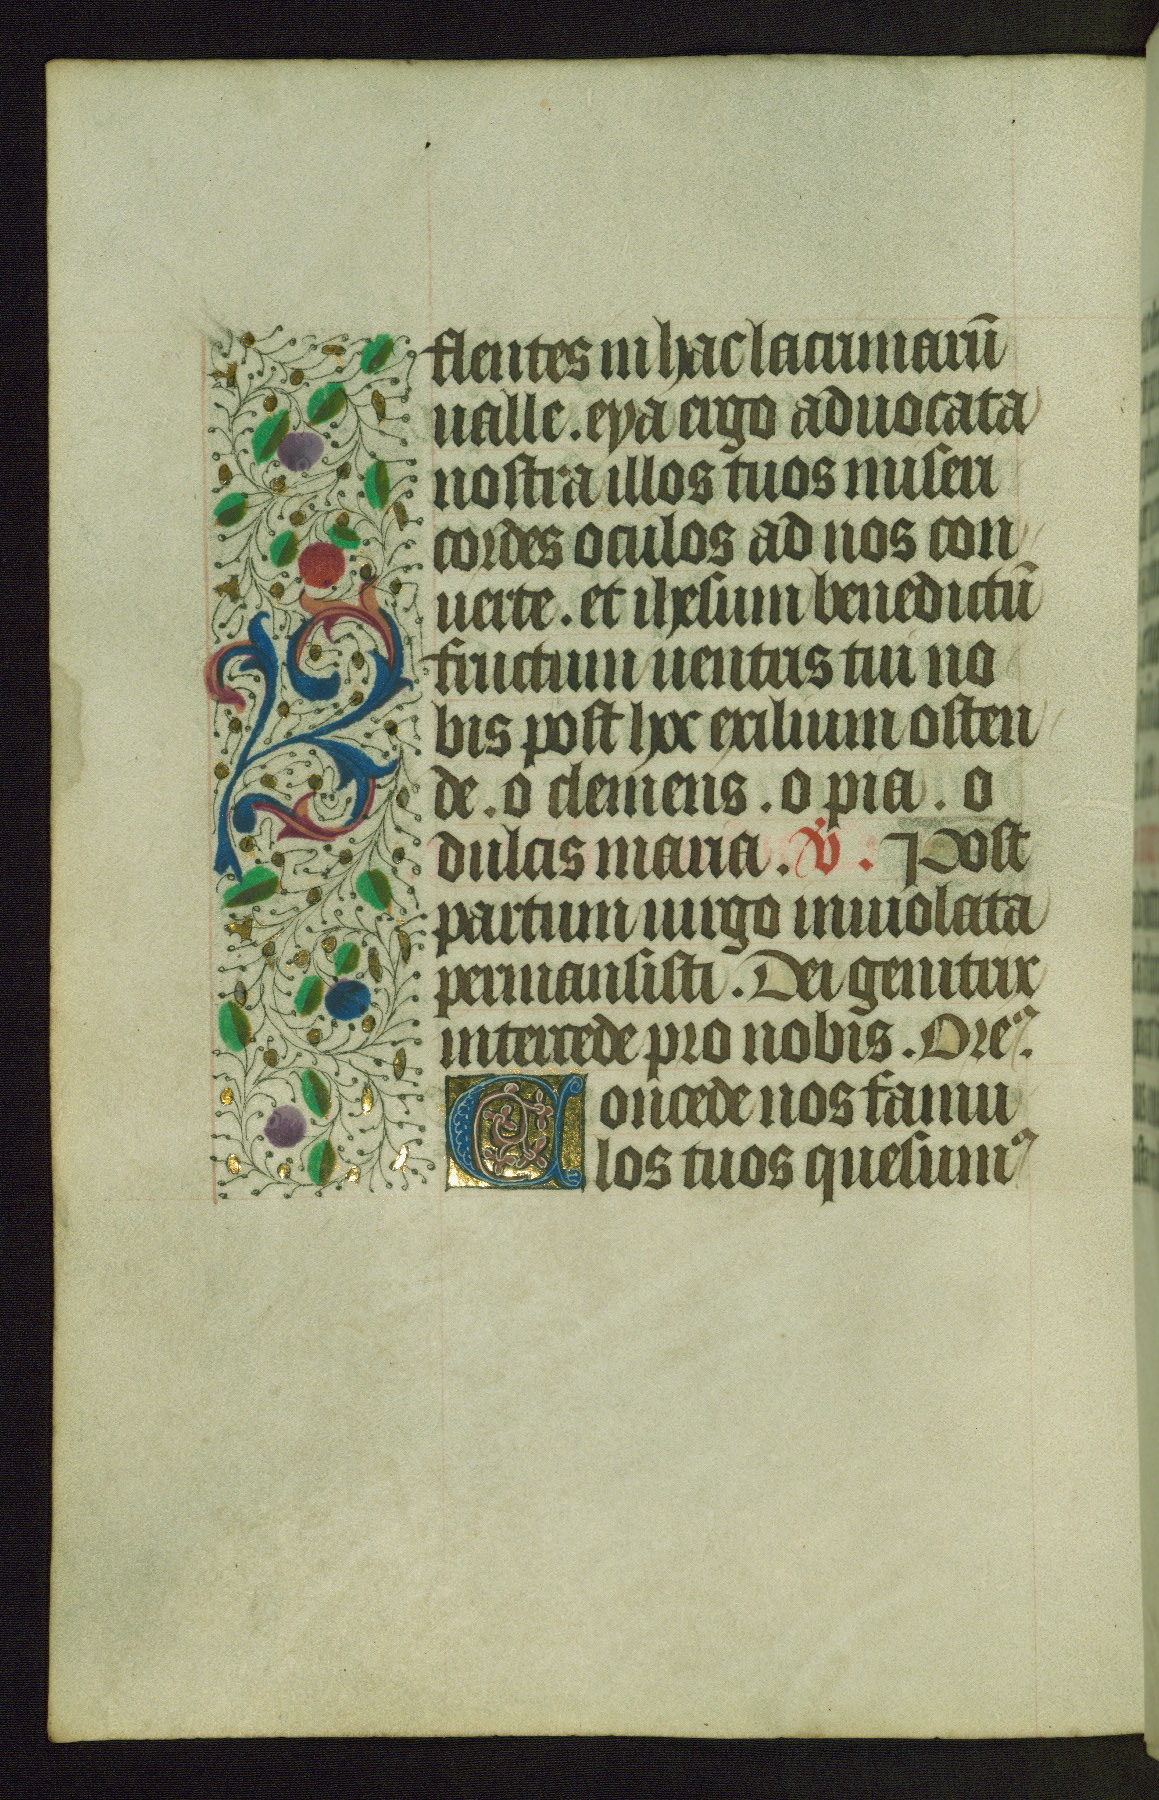 flentes in hac lacrimarū
ualle . eya ergo aduocata
nostra illos tuos miseri
cordes oculos ad nos con
uerte . et ihesum benedictū
fructum uentris tui no
bis post hoc exilium osten
de . o clemens . o pia . o
dulcis maria . V̄ . Post
partum uirgo inuiolata
permansisti . Dei genitrix
intercede pro nobis . Ore⁹ .
Concede nos famu
los tuos quesum⁹